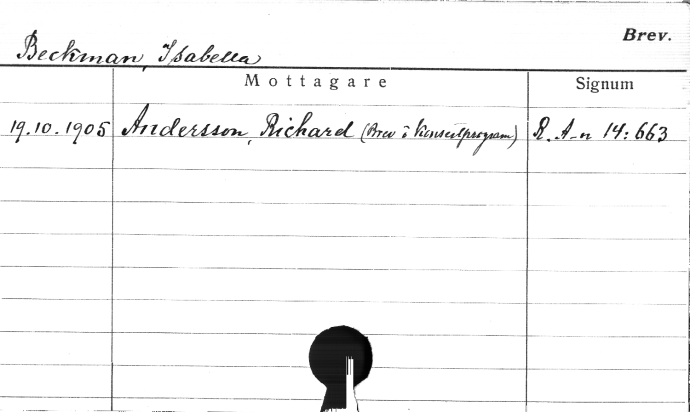 Brev.
Beckman, Isabella
Mottagare Signum
19.10.1905 Andersson, Richard (Brev å konsertprogram) R. A-n 14:663